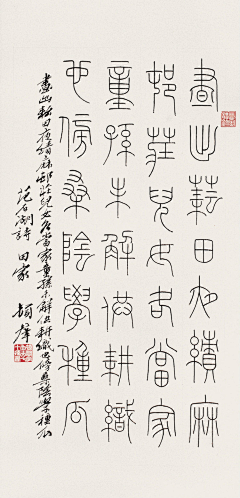 晝出耘田夜績麻
邨莊兒女各當家
童孫未解供耕織
也傍桑陰學種瓜
晝出耘田夜績麻邨莊兒女各當家童孫未解供耕織也傍桑陰學種瓜
范石湖詩 田家